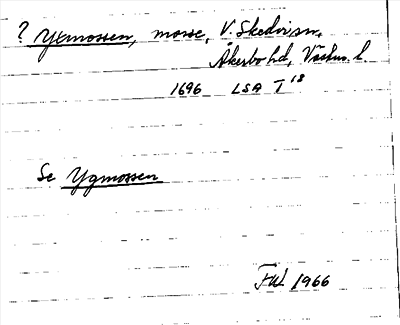 ? Ygmossen, mosse, V. Skedvi sn,
Åkerbo hd, Västm. l.
1696 LSA T 18
Se Ygmossen
FW 1966